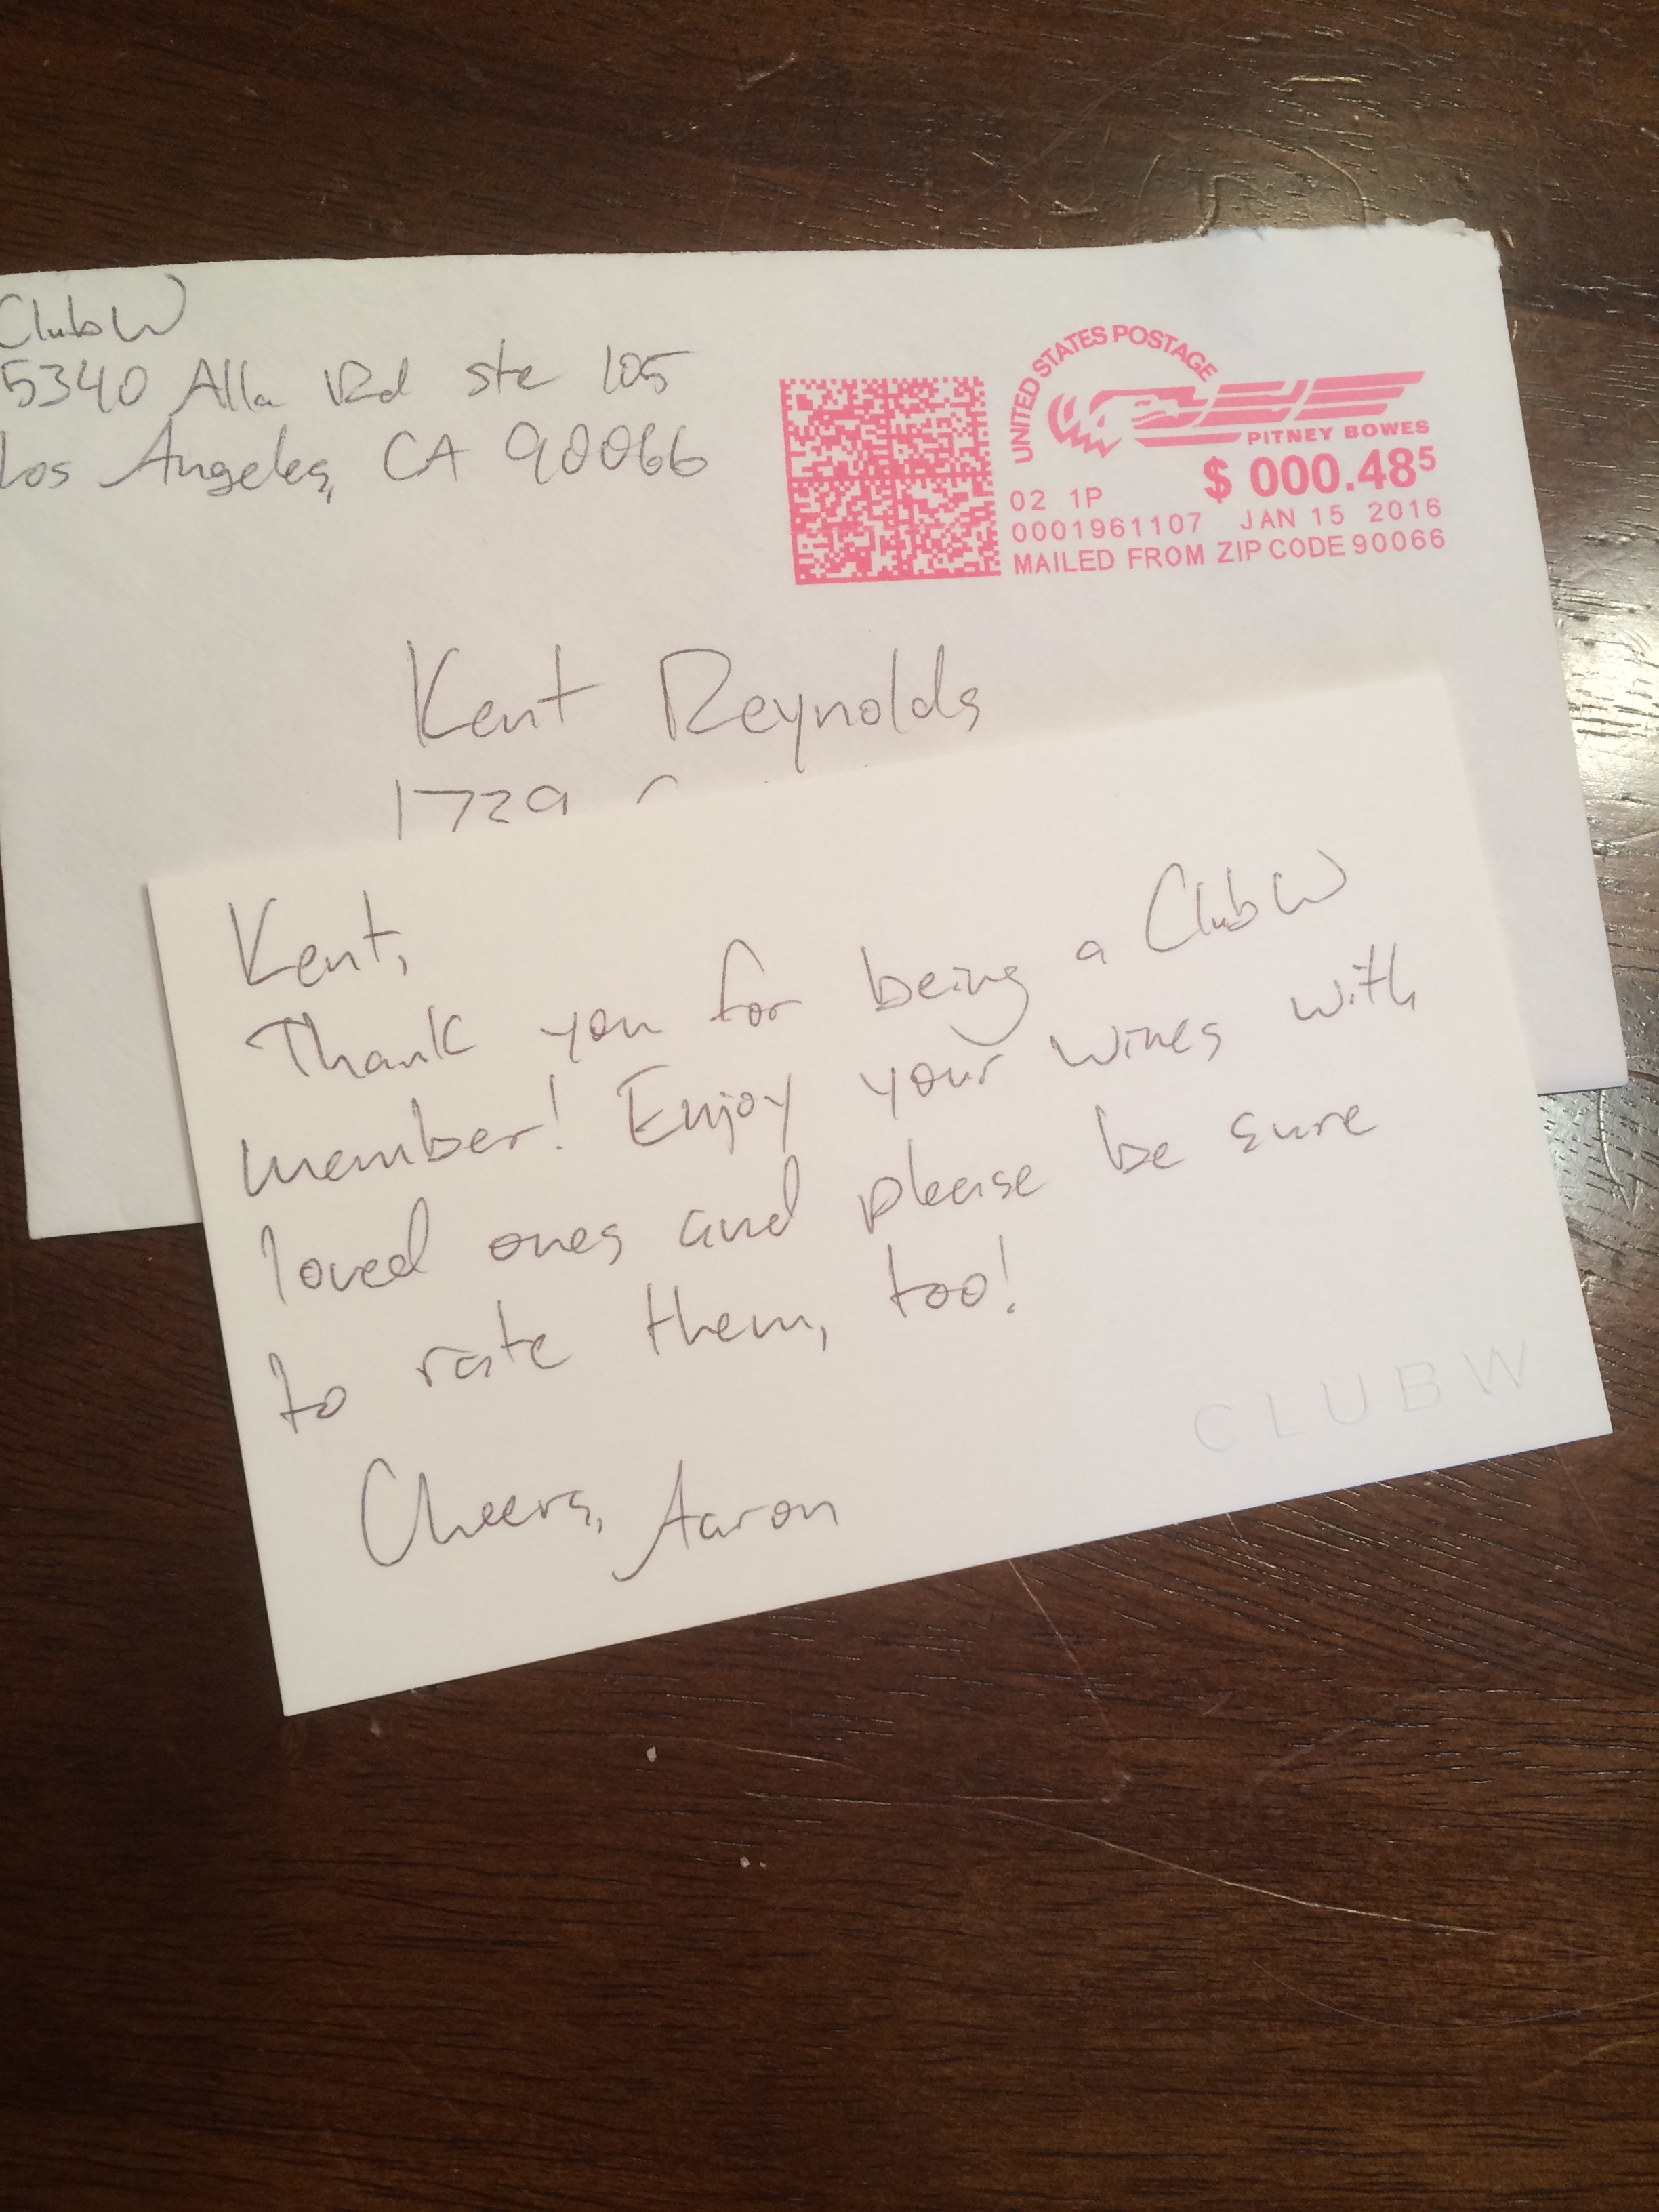 Club W
5340 Alla Rd ste 105
Los Angeles, CA 90066
UNITED STATES POSTAGE
PITNEY BOWES
$ 000.48⁵
02 1P
0001961107 JAN 15 2016
MAILED FROM ZIP CODE 90066
Kent Reynolds
1729
Kent,
Thank you for being a Club W
member! Enjoy your wines with
loved ones and please be sure
to rate them, too!
Cheers, Aaron
CLUBW